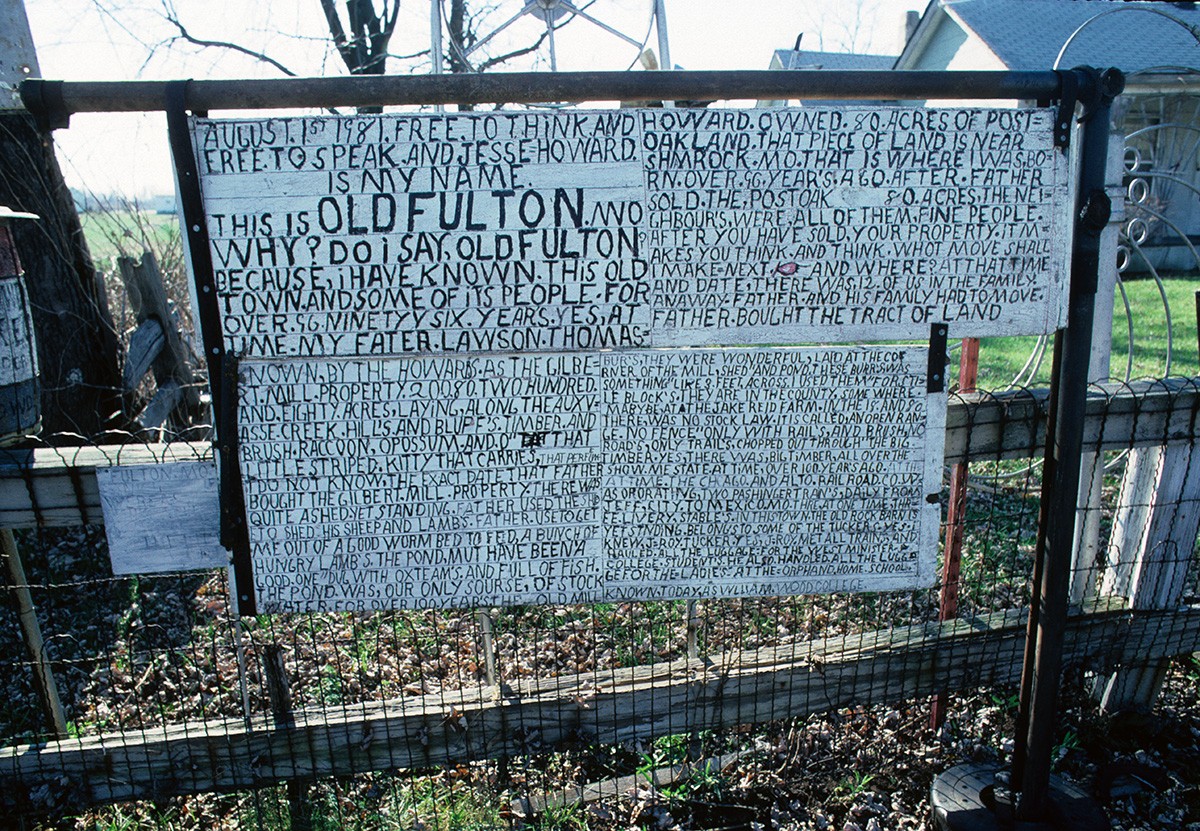 AUGUST. 1ST 1981. FREE. TO THINK. AND
FREE. TO SPEAK. AND JESSE HOWARD.
IS MY NAME.
THIS IS OLD FULTON. AND
WHY? DO i SAY, OLD FULTON
BECAUSE, i HAVE KNOWN. THiS OLD
TOWN. AND SOME OF ITS PEOPLE. FOR
OVER. 96. NINETYY SIX. YEARS. YES, AT
TIME. MY FATER. LAWSON. THOMAS-
HOWARD. OWNED. 80. ACRES OF POST
OAKLAND. THAT PIECE OF LAND IS NEAR
SHMROCK. MO. THAT IS WHERE I WAS. BO-
RN. OVER. 96. YEAR'S. AGO. AFTER. FATHER
SOLD. THE. POSTOAK 80. ACRES, THE NEI-
GHBOUR'S, WERE, ALL OF THEM. FINE PEOPLE.
AFTER YOU HAVE SOLD, YOUR PROPERTY. IT M-
AKES YOU THINK AND THINK. WHOT MOVE SHALL
I MAKE-NEXT. AND WHERE? AT THAT TIME
AND DATE, THERE WAS, 12. OF US IN THE FAMILY.
ANAWAY. FATHER. AND HIS FAMILY HAD TO MOVE.
FATHER. BOUGHT THE TRACT OF LAND
KNOWN, BY THE HOWARDS. AS THE GILBE-
RT. MILL. PROPERTY. 20080. TWO HUNDRED.
AND. EIGHTY. ACRES, LAYING, ALONG, THE AUXV-
ASSE CREEK. HILL'S. AND BLUFF'S. TIMBER. AND
BRUSH. RACCOON, OPOSSUM. AND. THAT
LITTLE STRIPED, KITTY THAT CARRIES, THAT
DO NOT KNOW, THE EXACT DATE THAT FATHER
BOUGHT THE GILBERT. MILL. PROPERTY. THERE WAS
QUITE A SHED. YET STANDING. FATHER USED
TO SHED HIS SHEEP AND LAMBS. FATHER. USE TO GET
ME OUT OF A GOOD WORM BED TO FED, A BUNCH OF
HUNGRY LAMB'S. THE POND, MUT HAVE BEEN A
GOOD. ONE "DUG, WITH OXTEAM'S. AND FULL OF FISH.
THE POND. WAS, OUR ONLY SOURSE, OF STOCK
WATER FOR OLD MILL
BUR'S, THEY WERE WONDERFUL, LAID AT THE COR
RNER. OF THE MILL, SHED" AND POND, THESE BURR'S WAS
SOMETHING" LIKE 8. FEEL, ACROSS, I USED THEM" FOR
BLOCK'S. THEY ARE IN THE COUNTY, SOME WHERE
MARYBE, AT A THE JAKE REID FARM. IN THE
THERE, WAS NO STOCK LAW, IT IS CALLED AN OPEN RAN-
GE, IN FENCE. ONLY WITH, RAILS, AND BRUSH. NO
ROAD'S, ONLY. TRAILS. CHOPPED OUT THROUGH" THE BIG
TIMBER. YES, THERE WAS, BIG, TIMBER, ALL OVER THE
SHOW. ME. STATE AT TIME. OVER 100. YEARS AGO. AT THE
TIME. THE CHICAGO. AND ALTO. RAIL. ROAD. CO. W
AS OPORATING, TWO PASHINGER TRAIN'S, DAILY, FROM
JEFF. CITY, TO MEXICO. MO. THREE, AT ONE TIME, THRE
EE. LIVERY STABLES IN THIS TOWN. THE OLD ROCK. BARN
YET. STANDING, BELONGS TO SOME OF THE TUCKER'S. YES, I
KNEW, J. ROY. TUCKERY. ROY. MET ALL TRAINS. AND
HAULED. ALL THE LUGGAGE. FOR THE WEST MINISTER. &
COLLEGE. STUDENT'S. HE ALSO. HANDLED. ALL THE LUGGA
GE FOR THE LADIES - AT THE - ORPHAND, HOME SCHOOL.
KNOWN. TODAY. AS WILLIAM, WOODS COLLEGE.